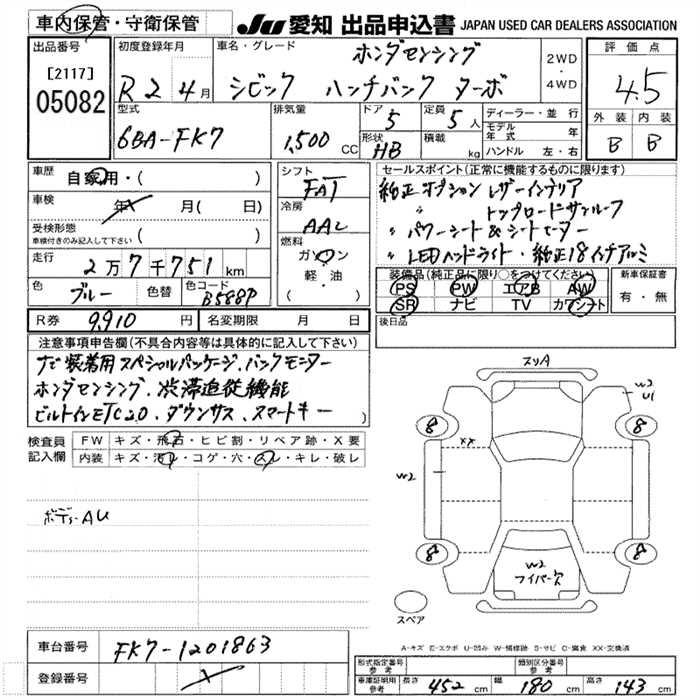 車内保管・守衛保管
JU 愛知 出品申込書 JAPAN USED CAR DEALERS ASSOCIATION
出品番号
[2117]
05082
初度登録年月
R2 4月
車名・グレード
ホンダセンシング
シビック ハッチバック ターボ
2WD
・
4WD
評価点
4.5
外装 内装
B B
型式
6BA-FK7
排気量
1,500 CC
ドア
5
形状
HB
定員
5人
積載
kg
ディーラー・並行
モデル年式 年
ハンドル 左・右
車歴
自家用・( )
車検
年 月( 日)
受検形態
車検付きのみ記入して下さい ( )
走行
2万7千751km
色
ブルー
色替
色コード
B588P
シフト
FAT
冷房
AAC
燃料
ガソリン
・
軽・油
( )
セールスポイント(正常に機能するものに限ります)
純正オプション レザーインテリア
〃 トップロードサンルーフ
〃 パワーシート&シートヒーター
〃 LEDヘッドライト・純正18インチアルミ
装備品(純正品に限り○をつけてください)
PS PW エアB AW
SR ナビ TV カワシート
新車保証書
有・無
後日品
R券 9,910円 名変期限 月 日
注意事項申告欄(不具合内容等は具体的に記入して下さい)
ナビ装着用スペシャルパッケージ、バックモニター
ホンダセンシング、渋滞追従機能
ビルトインETC2.0、ダウンサス、スマートキー
検査員記入欄
FW キズ・飛石・ヒビ割・リペア跡・X要
内装 キズ・汚レ・コゲ・穴・スレ・キレ・破レ
ボディAU
スリA
W3
U1
8
8
XX
W2
8
8
W2
ワイパー欠
スペア
A-キズ E-エクボ U-凹み W-補修跡 S-サビ C-腐食 XX-交換済
車台番号 FK7-1201863
登録番号
型式指定番号 参考
類別区分番号 参考
車庫証明用 参考 長さ 452cm 幅 180cm 高さ 143cm